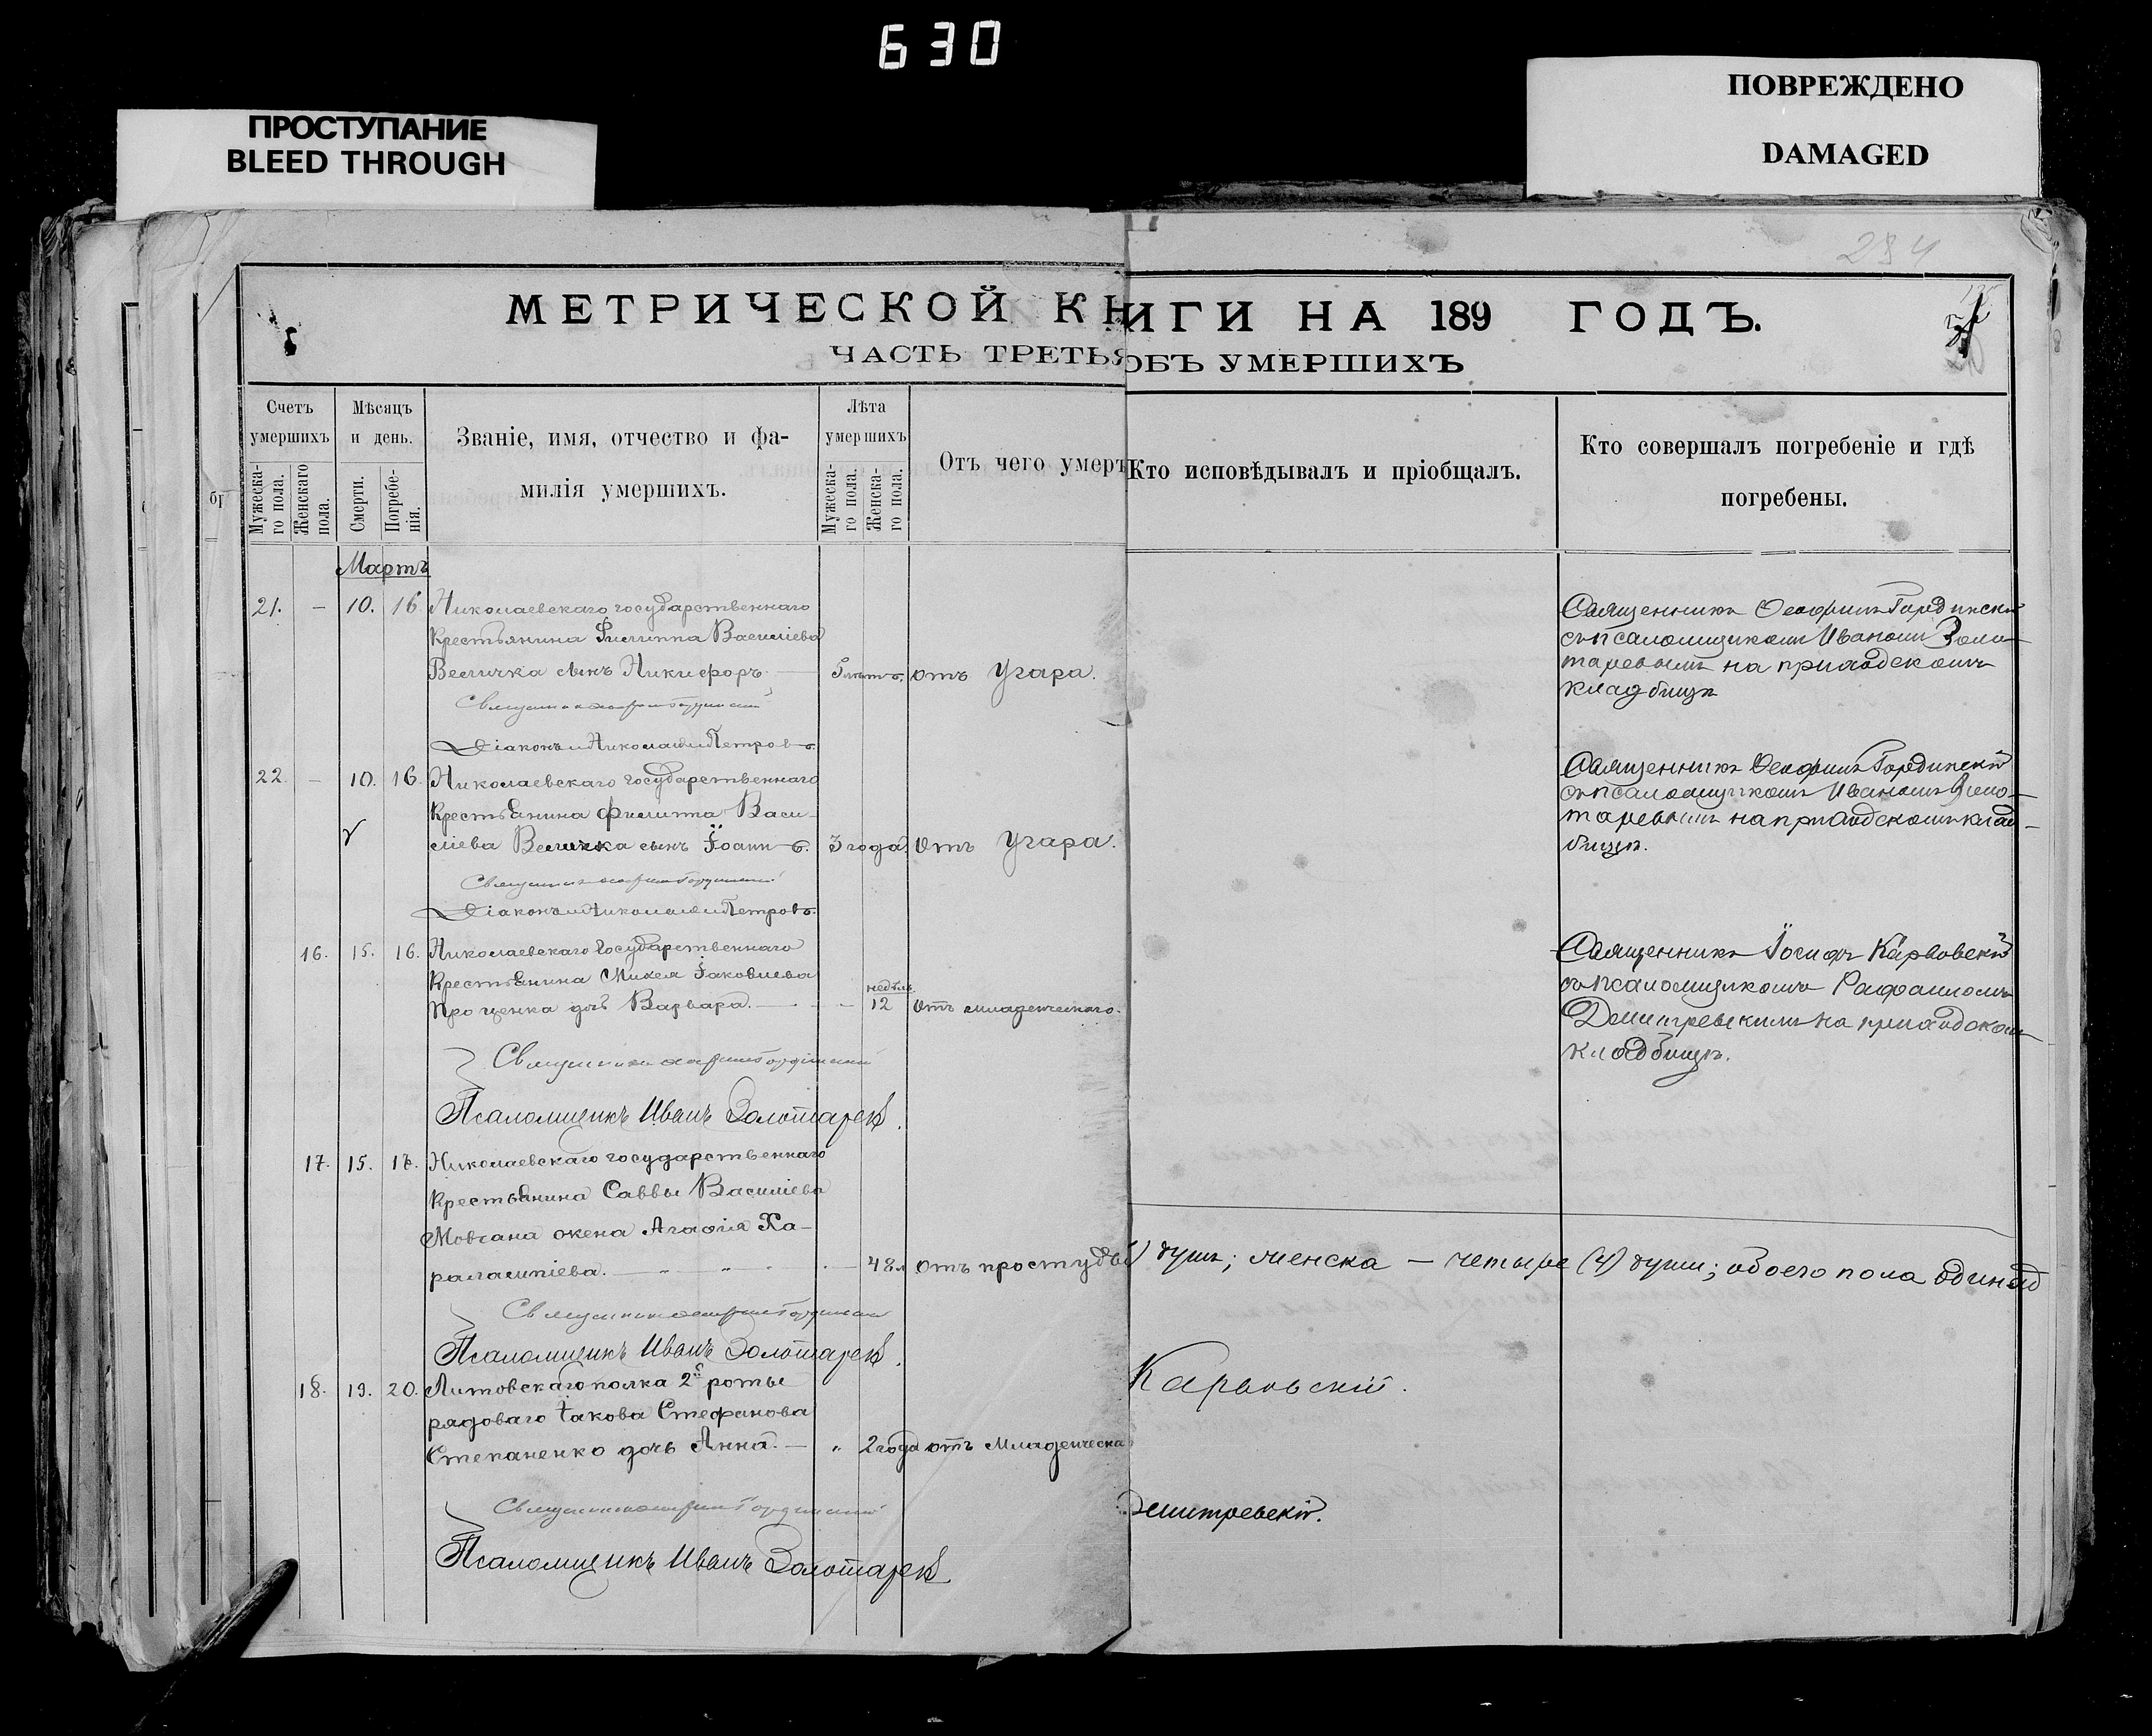 630
ПРОСТУПАНИЕ
BLEED THROUGH
ПОВРЕЖДЕНО
DAMAGED
234
МЕТРИЧЕСКОЙ КНИГИ НА 189 ГОДЪ.
ЧАСТЬ ТРЕТЬЯ ОБЪ УМЕРШИХЪ
Счетъ умершихъ
Мужеска-го пола.
Женскаго пола.
Мѣсяцъ и день.
Смерти.
Погребе-нія.
Званіе, имя, отчество и фа-
милія умершихъ.
Лѣта умершихъ
Мужеска-го пола.
Женска-го пола.
Отъ чего умеръ
Кто исповѣдывалъ и пріобщалъ.
Кто совершалъ погребеніе и гдѣ
погребены.
Мартъ
21. – 10. 16 Николаевскаго государственнаго
крестьянина Филиппа Василіева
Величка сынъ Никифоръ. 5 лѣтъ. отъ Угара.
Священникъ Гординскій
Діаконъ Николай Петровъ.
Священникъ Ѳеофилъ Гординскі
съ псаломщикомъ Иваномъ Золо-
таревымъ на приходскомъ
кладбищѣ
22. – 10. 16. Николаевскаго государственнаго
крестьянина Филиппа Васи-
лева Величка сынъ Іоаннъ. 3 года. отъ Угара.
Священникъ Гординскій
Діаконъ Николай Петровъ.
Священникъ Ѳеофилъ Гординскій
съ псаломщикомъ Иваномъ Золо-
таревымъ на приходскомъ клад-
бищѣ.
16. 15. 16. Николаевскаго Государственнаго
крестьянина Михея Іаковлева
Проценка дочь Варвара. – недѣль 12 отъ младенческаго.
Священникъ Гординскій
Псаломщикъ Иванъ Золотаревъ.
Священникъ Іосифъ Карвовскій
съ псаломщикомъ Рафаиломъ
Демитревскимъ на приходском
кладбищѣ.
17. 15. 17. Николаевскаго государственнаго
крестьянина Саввы Василіева
Мовчана жена Агафія Ха-
рალампіева. – 48 л отъ простуды
Священникъ Гординскій
Псаломщикъ Иванъ Золотаревъ.
) душъ; женска – четыре (4) души; обоего пола одинад
18. 19. 20. Литовскаго полка 2й роты
рядоваго Іакова Стефанова
Степаненко дочь Анна. – " 2 года отъ Младенческа
Священникъ Гординскій
Псаломщикъ Иванъ Золотаревъ
Карвовскій.
Демитревскій.